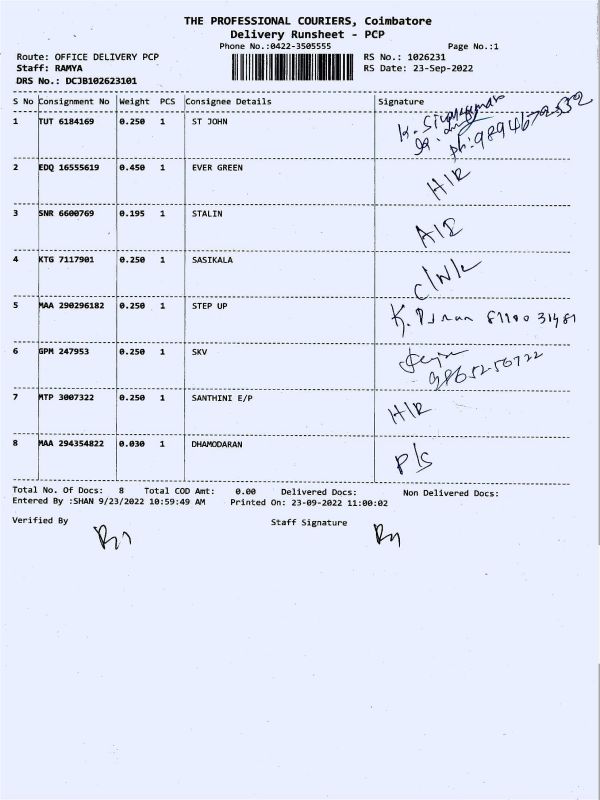 THE PROFESSIONAL COURIERS, Coimbatore
Delivery Runsheet - PCP
Phone No.:0422-3505555 Page No.:1
Route: OFFICE DELIVERY PCP RS No.: 1026231
Staff: RAMYA RS Date: 23-Sep-2022
DRS No.: DCJB102623101
S No Consignment No Weight PCS Consignee Details Signature
1 TUT 6184169 0.250 1 ST JOHN K. Sivakumar
ph: 9894672532
2 EDQ 16555619 0.450 1 EVER GREEN H/R
3 SNR 6600769 0.195 1 STALIN A/R
4 KTG 7117901 0.250 1 SASIKALA C/N/L
5 MAA 290296182 0.250 1 STEP UP K. 81100 31481
6 GPM 247953 0.250 1 SKV
9865256722
7 MTP 3007322 0.250 1 SANTHINI E/P H/R
8 MAA 294354822 0.030 1 DHAMODARAN P/S
Total No. Of Docs: 8 Total COD Amt: 0.00 Delivered Docs: Non Delivered Docs:
Entered By :SHAN 9/23/2022 10:59:49 AM Printed On: 23-09-2022 11:00:02
Verified By Staff Signature